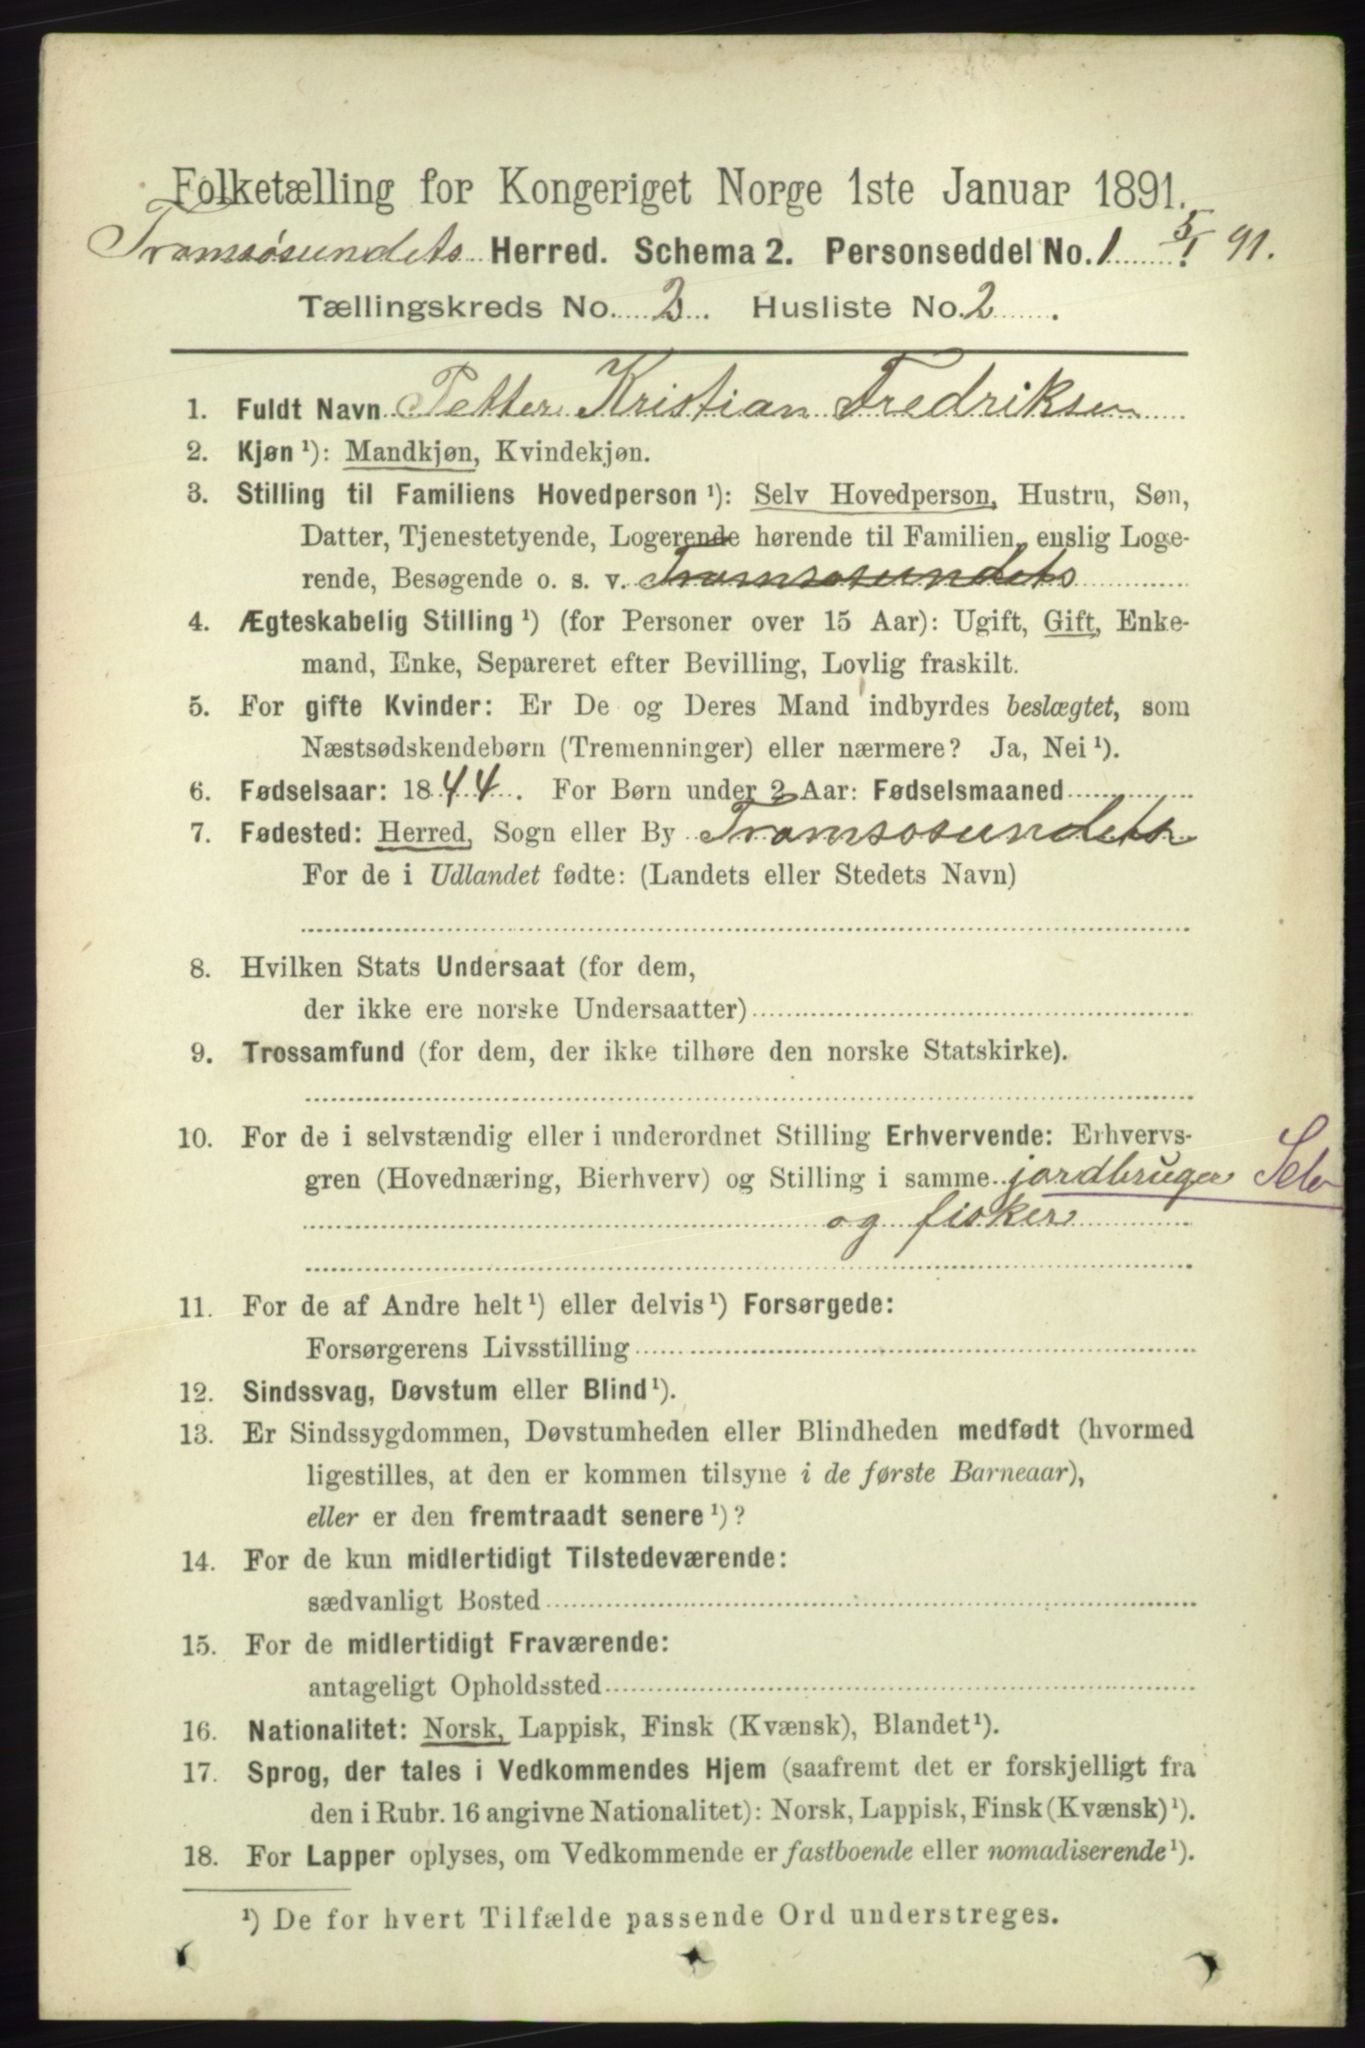 Folketælling for Kongeriget Norge 1ste Januar 1891.
Tromsøsundets Herred. Schema 2. Personseddel No. 1 5/1 91.
Tællingskreds No. 2 Husliste No. 2.
1. Fuldt Navn Petter Kristian Fredriksen
2. Kjøn ¹): Mandkjøn, Kvindekjøn.
3. Stilling til Familiens Hovedperson ¹): Selv Hovedperson, Hustru, Søn,
Datter, Tjenestetyende, Logerende hørende til Familien, enslig Loge-
rende, Besøgende o. s. v. Tromsosundets
4. Ægteskabelig Stilling ¹) (for Personer over 15 Aar): Ugift, Gift, Enke-
mand, Enke, Separeret efter Bevilling, Lovlig fraskilt.
5. For gifte Kvinder: Er De og Deres Mand indbyrdes beslægtet, som
Næstsødskendebørn (Tremenninger) eller nærmere? Ja, Nei ¹).
6. Fødselsaar: 1844. For Børn under 2 Aar: Fødselsmaaned
7. Fødested: Herred, Sogn eller By Tromsosundets
For de i Udlandet fødte: (Landets eller Stedets Navn)
8. Hvilken Stats Undersaat (for dem,
der ikke ere norske Undersaatter)
9. Trossamfund (for dem, der ikke tilhøre den norske Statskirke).
10. For de i selvstændig eller i underordnet Stilling Erhvervende: Erhvervs-
gren (Hovednæring, Bierhverv) og Stilling i samme jordbruger Selv
og fisker
11. For de af Andre helt ¹) eller delvis ¹) Forsørgede:
Forsørgerens Livsstilling
12. Sindssvag, Døvstum eller Blind ¹).
13. Er Sindssygdommen, Døvstumheden eller Blindheden medfødt (hvormed
ligestilles, at den er kommen tilsyne i de første Barneaar),
eller er den fremtraadt senere ¹)?
14. For de kun midlertidigt Tilstedeværende:
sædvanligt Bosted
15. For de midlertidigt Fraværende:
antageligt Opholdssted
16. Nationalitet: Norsk, Lappisk, Finsk (Kvænsk), Blandet ¹).
17. Sprog, der tales i Vedkommendes Hjem (saafremt det er forskjelligt fra
den i Rubr. 16 angivne Nationalitet): Norsk, Lappisk, Finsk (Kvænsk) ¹).
18. For Lapper oplyses, om Vedkommende er fastboende eller nomadiserende ¹).
¹) De for hvert Tilfælde passende Ord understreges.